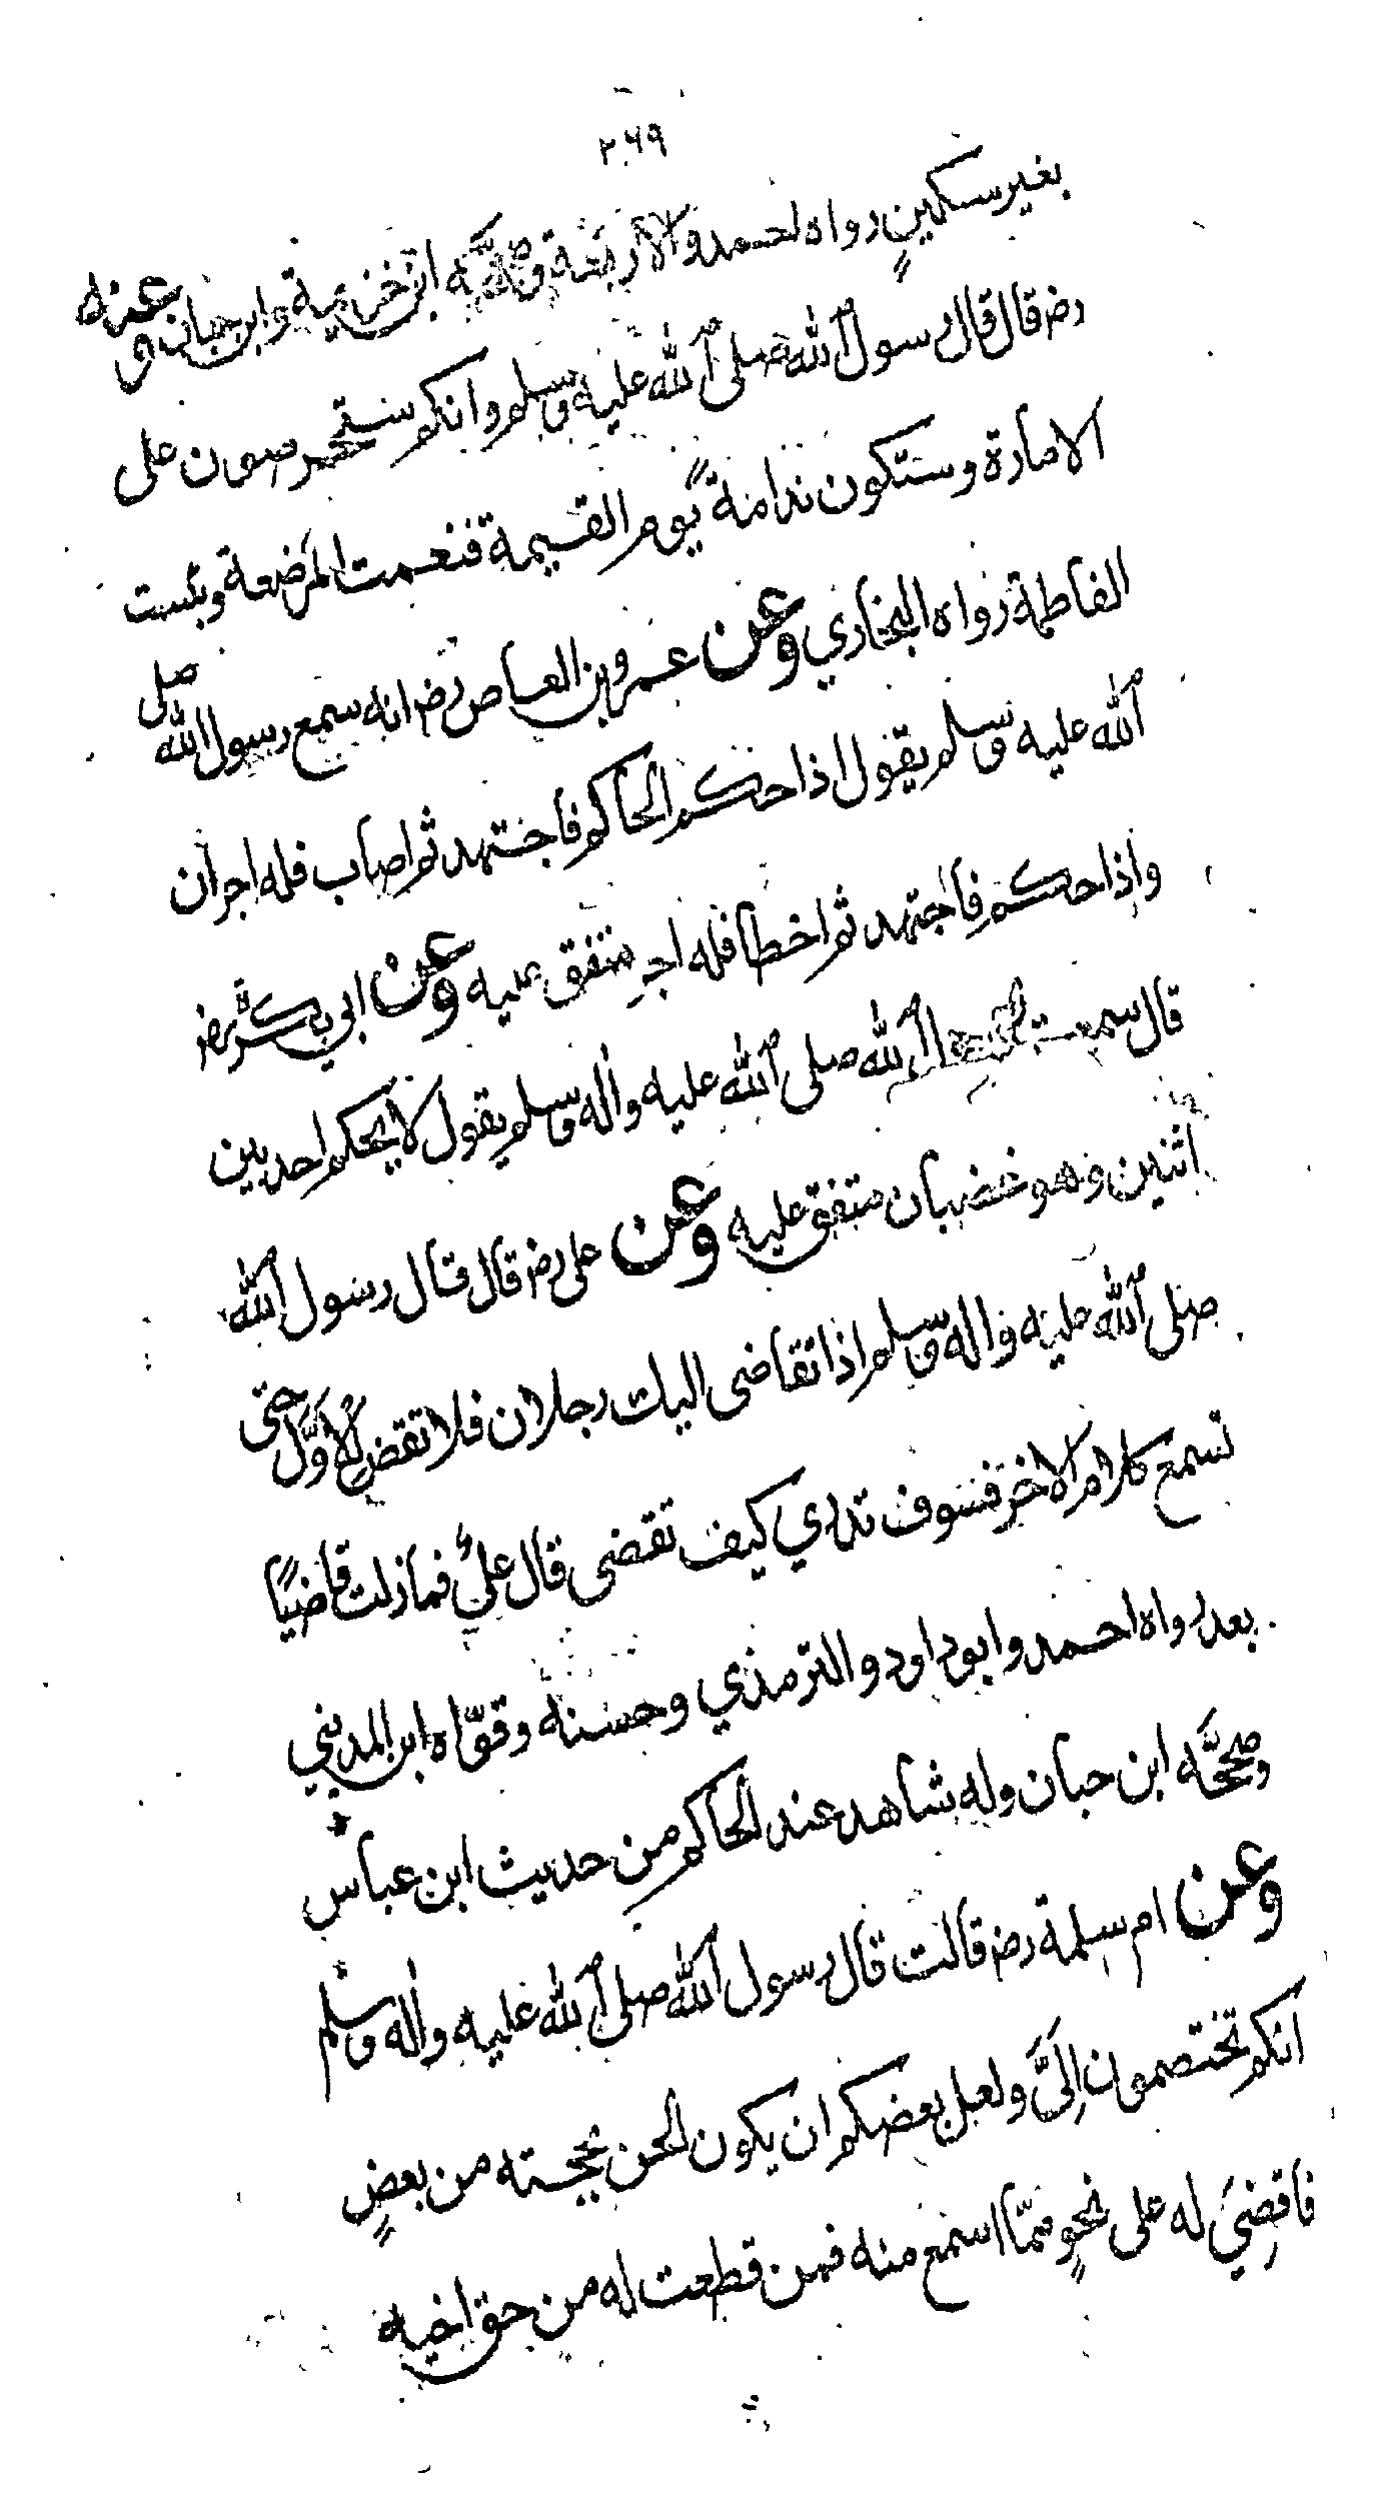 ٢٦٩
بغير سكينٍ رواه احمد والاربعة وصححَّه ابن خزيمة وابن حبان وعنه
رضـ قال قال رسول الله صلى الله عليه وسلم وانكم ستحرصون على
الامارة وستكون ندامةً يوم القيمة فنعمت المرضعة وبئست
الفاطمة رواه البخاري وعن عمرو بن العاص رضـ انه سمع رسول الله صلى
الله عليه وسلم يقول اذا حكم الحاكم فاجتهد ثم اصاب فله اجران
واذا حكم فاجتهد ثم اخطأ فله اجر متفق عليه وعن ابي بكرة رضـ
قال سمعت الله صلى الله عليه واله وسلم يقول لا يحكم احد بين
اثنين وهو غضبان متفق عليه وعن على رضـ قال قال رسول الله
صلى الله عليه واله وسلم اذا تقاضى اليك رجلان فلا تقض للاوَّل حتى
تسمع كلام الاخر فسوف تدري كيف تقضى قال علىٌّ فما زلت قاضيًا
بعد رواه احمد وابو داود والترمذي وحسنه وقوّاه ابن المديني
وصححَّه ابن حبان وله شاهد عند الحاكم من حديث ابن عباس
وعن ام سلمة رضـ قالت قال رسول الله صلى الله عليه واله وسلم
انكم تختصمون اِلَىَّ ولعل بعضكم ان يكون الحن بحجته من بعضٍ
فاقضِيَ له على نحوٍ ممّا اسمع منه فمن قطعت له من حق اخيه